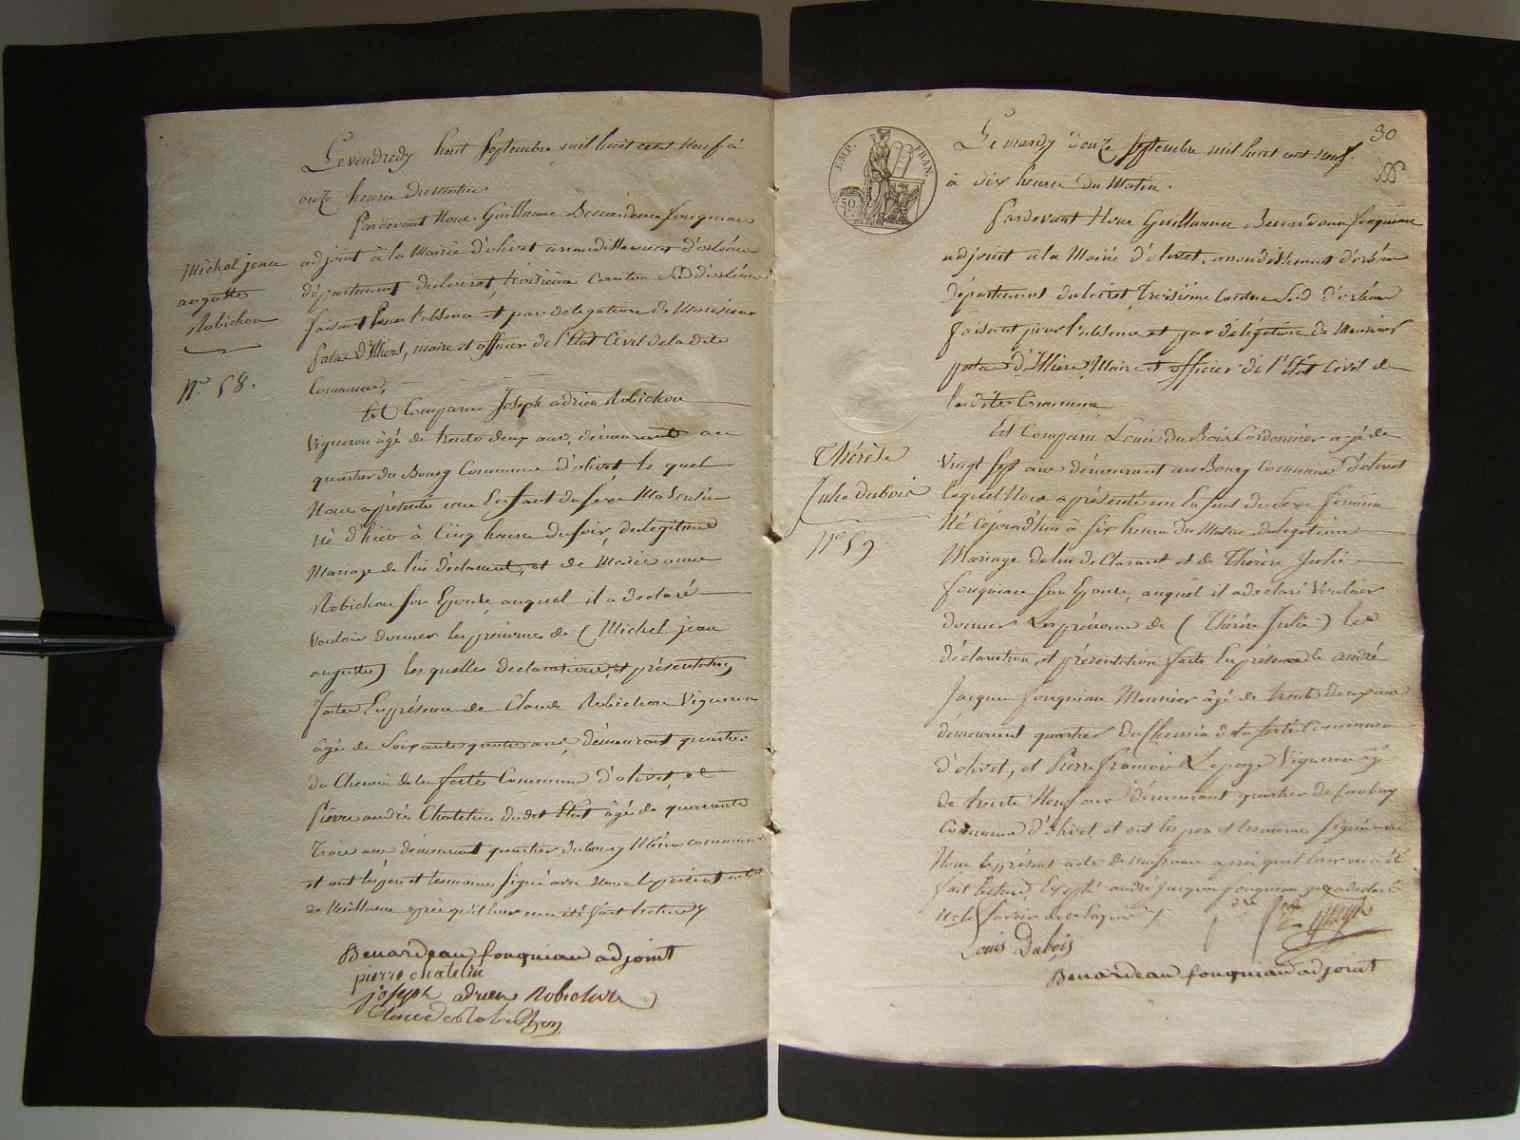 Le vendredy huit Septembre mil huit cent neuf à
onze heures du matin
Pardevant Nous Guillaume Benardeau fouqueau
adjoint à la Mairie d'olivet arrondissement d'orléans
département du loiret, troisieme Canton Sud d'orléans
faisant pour l'absence et par délégation de Monsieur
maire et officier de l'Etat Civil de la dite
Commune,
Est Comparu Joseph adrien Robichon
Vigneron âgé de trente deux ans, demeurant au
quartier du Bourg Commune d'olivet le quel
Nous a présenté un Enfant du sexe Masculin
né d'hier à Cinq heures du soir, du légitime
Mariage de lui déclarant, et de Marie anne
Robichon son Epouse, auquel il a declaré
Vouloir donner les prénoms de (Michel jean
auguste) les quelles declaration, et présentation
faites En présence de Claude Robichon Vigneron
âgé de Soixante quatre ans, demeurant quartier
du Chemin de la ferté Commune d'olivet, et
Pierre andré Chatelin dudit Etat âgé de quarante
trois ans demeurant quartier du bourg commune
et ont les père et temoins signé avec Nous le présent acte
de Naissance après qu'il leur en a été fait lecture
Benardeau fouqueau adjoint
pierre chatelin
joseph adrien Robichon
Claude Robichon
Michel jean
auguste
Robichon
No. 58.
30
EMP. FRAN.
50
Le mardy douze Septembre mil huit cent neuf
à dix heures du Matin.
Pardevant Nous Guillaume Benardeau fouqueau
adjoint à la Mairie d'olivet, arrondissement d'orléans
département du loiret, Troisième Canton Sud d'orléans
faisant pour l'absence et par délégation de Monsieur
Maire et officier de l'Etat Civil de
la dite Commune
Est Comparu Louis Dubois Cordonnier agé de
vingt sept ans démeurant au Bourg Commune d'olivet
lequel Nous a présenté un Enfant du sexe féminin
Né cejourd'hui à six heures du Matin du légitime
Mariage de lui déclarant et de Thérèse Julie
fouqueau son Epouse, auquel il a declaré Vouloir
donner Les prénoms de (Thérèse Julie) les
déclaration, et présentation faite En présence de andré
Jacques fouqueau Meunier âgé de trente deux ans
démeurant quartier du Chemin de la ferté Commune
d'olivet, et Pierre françois Lepage Vigneron âgé
de trente Neuf ans démeurant quartier de
Commune d'olivet et ont les père et temoins signé avec
Nous le présent acte de naissance après qu'il leur en a été
fait lecture, Excepté andré Jacques fouqueau qui a declaré
ne le savoir de ce requis
Louis Dubois
Benardeau fouqueau adjoint
Thérèse
Julie dubois
No 59